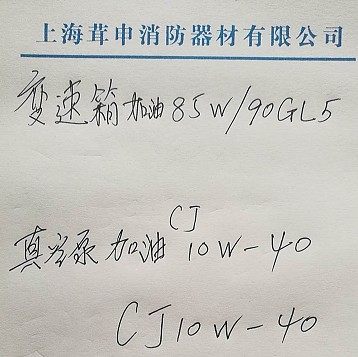 上海茸申消防器材有限公司
变速箱加油85W/90GL5
真空泵加油CJ10W-40
CJ10W-40